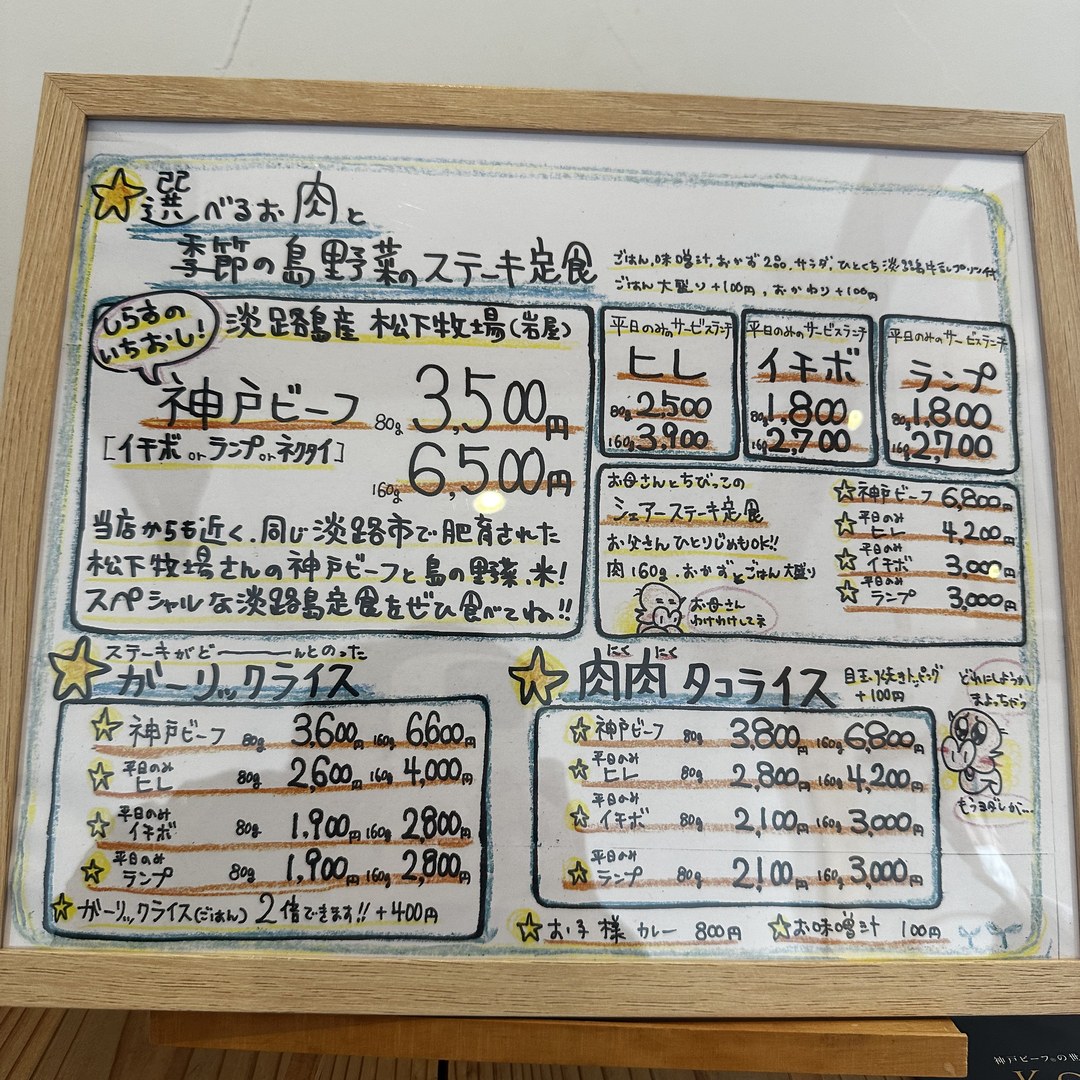 選べるお肉と
季節の島野菜のステーキ定食
ごはん、味噌汁、おかず2品、サラダ、ひとくち淡路島牛乳プリン付
ごはん大盛り+100円、おかわり+100円
しらすの
いちおし!
淡路島産 松下牧場(岩屋)
神戸ビーフ 80g 3,500円
[イチボorランプorネクタイ]
160g 6,500円
当店からも近く、同じ淡路市で肥育された
松下牧場さんの神戸ビーフと島の野菜、米!
スペシャルな淡路島定食をぜひ食べてね!!
平日のみのサービスランチ
ヒレ
80g 2,500
160g 3,900
平日のみのサービスランチ
イチボ
80g 1,800
160g 2,700
平日のみのサービスランチ
ランプ
80g 1,800
160g 2,700
お母さんとちびっての
シェアーステーキ定食
お父さんひとりじめもOK!!
肉160g、おかずとごはん大盛り
お母さん
わけわけしてネ
神戸ビーフ 6,800円
平日のみ
ヒレ 4,200円
平日のみ
イチボ 3,000円
平日のみ
ランプ 3,000円
ステーキがど――んとのった
ガーリックライス
神戸ビーフ 80g 3,600円 160g 6,600円
平日のみ
ヒレ 80g 2,600円 160g 4,000円
平日のみ
イチボ 80g 1,900円 160g 2,800円
平日のみ
ランプ 80g 1,900円 160g 2,800円
ガーリックライス(ごはん) 2倍できます!! +400円
にく にく
肉肉タコライス
目玉焼きトッピング
+100円
神戸ビーフ 80g 3,800円 160g 6,800円
平日のみ
ヒレ 80g 2,800円 160g 4,200円
平日のみ
イチボ 80g 2,100円 160g 3,000円
平日のみ
ランプ 80g 2,100円 160g 3,000円
どれにしようか
まよっちゃう
もうヨダレが…
お子様カレー 800円
お味噌汁 100円
神戸ビーフの世